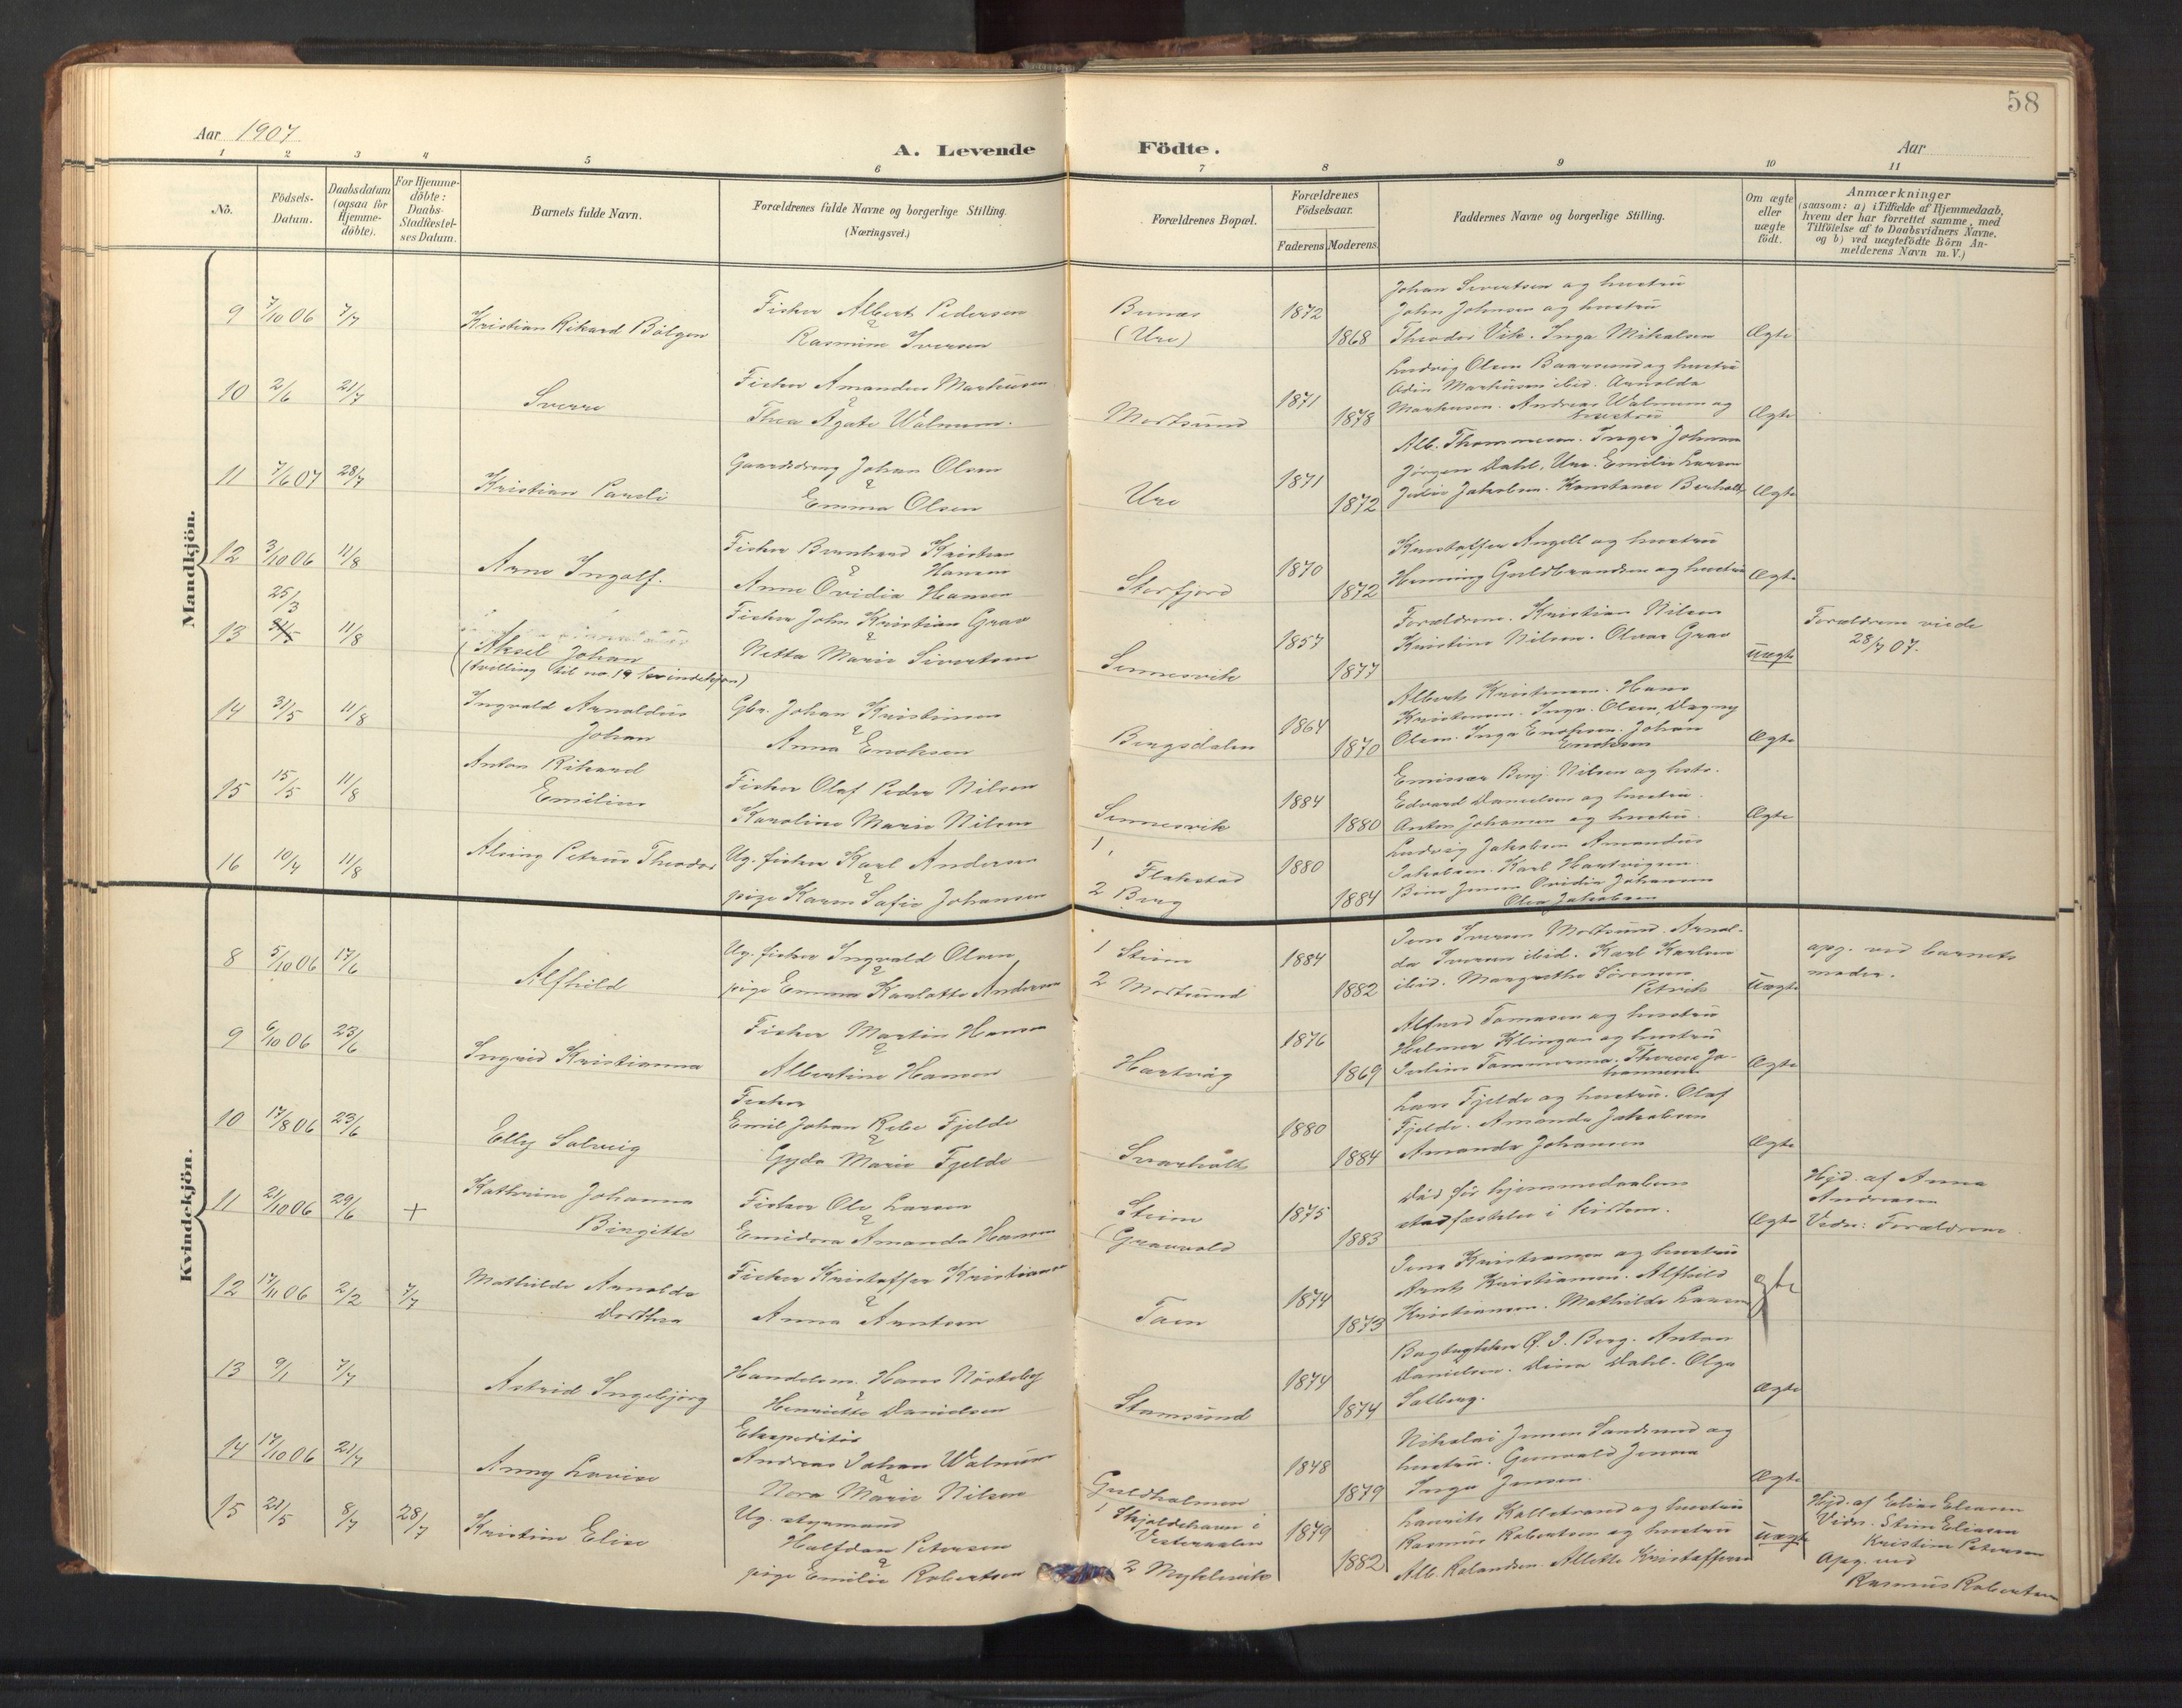 58
Aar 1907
A. Levende Födte.
Aar
1 2 3 4 5 6 7 8 9 10 11
No.
Födsels-
Datum.
Daabsdatum
(ogsaa for
Hjemme-
döbte).
For Hjemme-
döbte:
Daabs-
Stadfestel-
ses Datum.
Barnets fulde Navn.
Forældrenes fulde Navne og borgerlige Stilling.
(Næringsvei.)
Forældrenes Bopæl.
Forældrenes
Födselsaar.
Faderens Moderens
Faddernes Navne og borgerlige Stilling.
Om ægte
eller
uægte
födt.
Anmærkninger
(saasom: a) i Tilfælde af Hjemmedaab,
hvem der har forrettet samme, med
Tilföielse af to Daabsvidners Navne.
og b) ved uægtefödte Börn An-
melderens Navn m. V.)
Mandkjön.
9 7/10 06 7/7
Kristian Rikard Bölgen
Fisker Albert Pedersen
&
Rasmine Iversen
(Ure)
1872
1868
Johan Sivertsen og hustru
John Johnsen og hustru
Theodor Vik. Inga Mikalsen
Ægte
10 2/6 21/7
Sverre
Fisker Amandus Markussen
&
Thea Agate Walnum.
Mortsund
1871
1878
Ludvig Olsen Baarsund og hustru
Odin Markussen ibid. Arnolda
Markussen. Andreas Walnum og
hustru
Ægte
11 7/6 07 28/7
Kristian Pareli
Gaardsdreng Johan Olsen
&
Emma Olsen
Ure
1871
1872
Alb. Thommesen. Inger Johnsen
Jörgen Dahl, Ure. Emilie Larsen
Julie Jakobsen. Konstance
Ægte
12 3/10 06 11/8
Arne Ingolf.
Fisker Bernhard Kristian
Hansen
&
Anne Ovidia Hansen
Storfjord
1870
1872
Kristoffer Angell og hustru
Henning Guldbrandsen og hustru
Ægte
13 25/3 11/8
Aksel Johan
(tvilling til no. 19 kvindekjøn)
Fisker John Kristian Grav
&
Netta Marie Sivertsen
Sennesvik
1857
1877
Forældrene. Kristian Nilsen
Kristine Nilsen. Olvar Grav
uægte
Forældrene viede
28/7 07.
14 31/5 11/8
Ingvald Arnoldus
Johan
Gbr. Johan Kristensen
&
Anna Enoksen
Bergsdalen
1864
1870
Albert Kristensen. Hans
Kristensen. Inga Olsen, Dagny
Olsen. Inga Enoksen. Johan
Enoksen
Ægte
15 15/5 11/8
Anton Rikard
Emilius
Fisker Olaf Peder Nilsen
Karoline Marie Nilsen
Sennesvik
1884
1880
Emissær Benj. Nilsen og hstr.
Edvard Danielsen og hustru.
Anton Johansen og hustru.
Ægte
16 10/4 11/8
Alsing Petrus Theodor
Ug. fisker Karl Andersen
&
pige Karen Sofie Johansen
1
Flakstad
2 Berg
1880
1884
Ludvig Jakobsen Amandus
Jakobsen. Karl Hartvigsen.
Jensen Ovidia Johansen
Olea Jakobsen
Kvindekjön.
8 5/10 06 17/6
Alfhild
Ug. fisker Ingvald Olsen
&
pige Emma Karlotte Andersen
1 Steine
2 Mortsund
1884
1882
Jens Iversen Mortsund. Arnol-
da Iversen ibid. Karl Karlsen
ibid. Margrethe Sörensen
Petvik
Uægte
opg. ved barnets
moder.
9 6/10 06 23/6
Ingrid Kristianna
Fisker Martin Hansen
&
Albertine Hansen
Hartvåg
1876
1869
Alfred Tomasen og hustru
Helmer Klingan og hustru
Julius Tommerma. Therese Jo-
hannesen
Ægte
10 17/8 06 23/6
Elly Solveig
Fisker
Emil Johan Rebe Fjelde
&
Gyda Marie Fjelde
Svarholt
1880
1884
Lars Fjelde og hustru. Olaf
Fjelde. Amanda Jakobsen
Amanda Johansen
Ægte
11 21/10 06 29/6 +
Kathrine Johanna
Birgitte
Fisker Ole Larsen
&
Emidora Amanda Hansen
Steine
(Grauvold
1875
1883
Död før hjemmedaabens
stadfæstelse i kirken.
Ægte
Hjd. af Anna
Andreasen
Vidn: Forældrene
12 17/11 06 2/2 7/7
Mathilde Arnolda
Dorthea
Fisker Kristoffer Kristiansen
&
Anna Arntsen
Toen
1874
1873
Jens Kristiansen og hustru
Arnt Kristiansen. Alfhild
Kristiansen. Mathilde Larsen
gte
13 9/1 7/7
Astrid Ingebjørg
Handelsm. Hans Nösteby
&
Henriette Danielsen
Stamsund
1874
1874
Bogtrykker Ø. J. Berg. Anton
Danielsen. Dina Dahl. Olga
Solberg.
Ægte
14 17/10 06 21/7
Anny Lovise
Ekspeditör
Andreas Johan Walnum
&
Nora Marie Nilsen
Guldholmen
1848
1879
Nikolai Jensen Sandsund og
hustru. Gunvald Jensen
Inga Jensen.
Ægte
15 21/5 8/7 28/7
Kristine Elise
Ug. styrmand
Halfdan Petersen
&
pige Emilie Robertsen
1 Skjoldehavn i
Vesteraalen
2 Myklevik
1879
1882
Laurits Kallestrand og hustru
Rasmus Robertsen og hustru
Alb. Rolandsen. Allette Kristoffersen
uægte
Hjd. af Elias Eliasen
Vidn. Stine Eliasen
Kristine Petersen
Opg. ved
Rasmus Robertsen